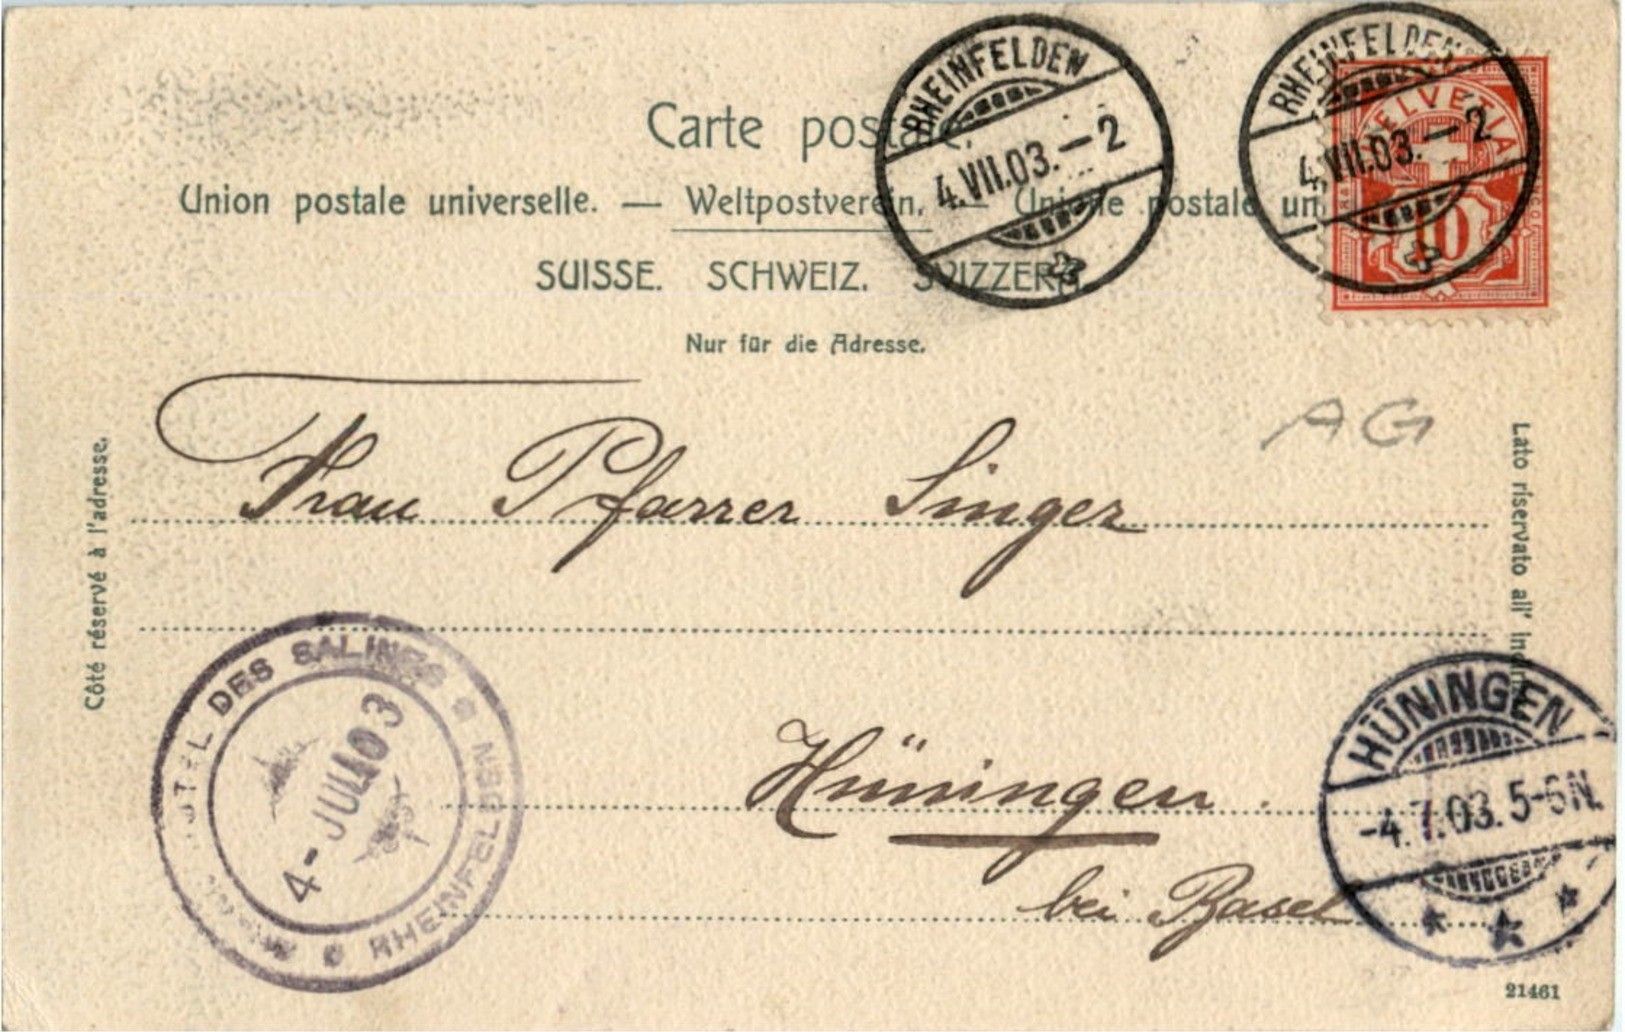 Carte postale.
Union postale universelle. — Weltpostverein. — Unione postale un
SUISSE. SCHWEIZ. SVIZZERA.
Nur für die Adresse.
RHEINFELDEN
4.VII.03.–2
RHEINFELDEN
4.VII.03.–2
HELVETIA
10
AG
Côté réservé à l'adresse.
Lato riservato all'
Frau Pfarrer Singer
Hüningen.
bei Basel
DES SALINES
RHEINFELDEN
4-JUL.03
HÜNINGEN
-4.7.03.5-6N.
21461